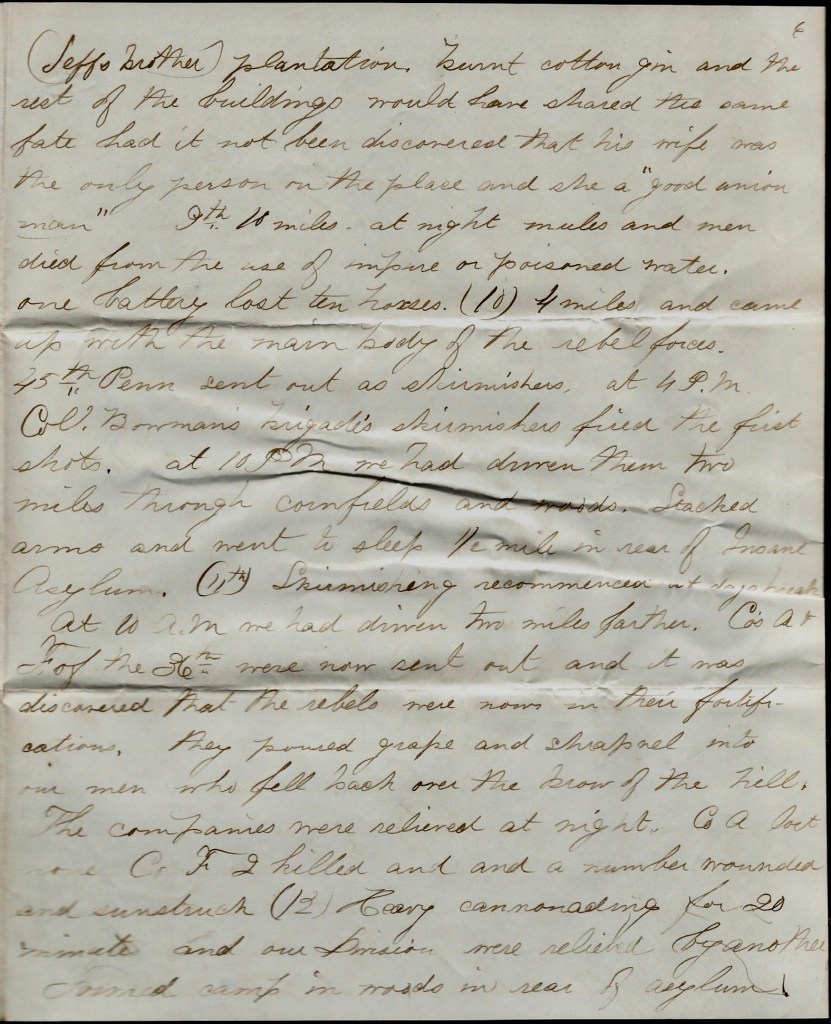 6
(Jeffs brother) plantation. burnt cotton gin and the
rest of the buildings would have shared the same
fate had it not been discovered that his wife was
the only person on the place and she a "good union
man" 9th 10 miles. at night mules and men
died from the use of impure or poisoned water.
one battery lost ten horses. (10) 4 miles and came
up with the main body of the rebel forces.
45th Penn sent out as skirmishers, at 4 P.M.
Col. Bowman's brigade's skirmishers fired the first
shots. at 10 P.M we had driven them two
miles through cornfields and woods. Stacked
arms and went to sleep 1/2 mile in rear of Insane
Asylum. (11th) Skirmishing recommenced at daybreak
At 10 A.M we had driven two miles farther. Co's A &
F of the 36th were now sent out and it was
discovered that the rebels were now in their fortifi-
cations. they poured grape and shrapnel into
our men who fell back over the brow of the hill.
The companies were relieved at night. Co A lost
none Co F 2 killed and and a number wounded
and sunstruck (12) Heavy cannonading for 20
minute and our Division were relieved by another
Formed camp in woods in rear of asylum